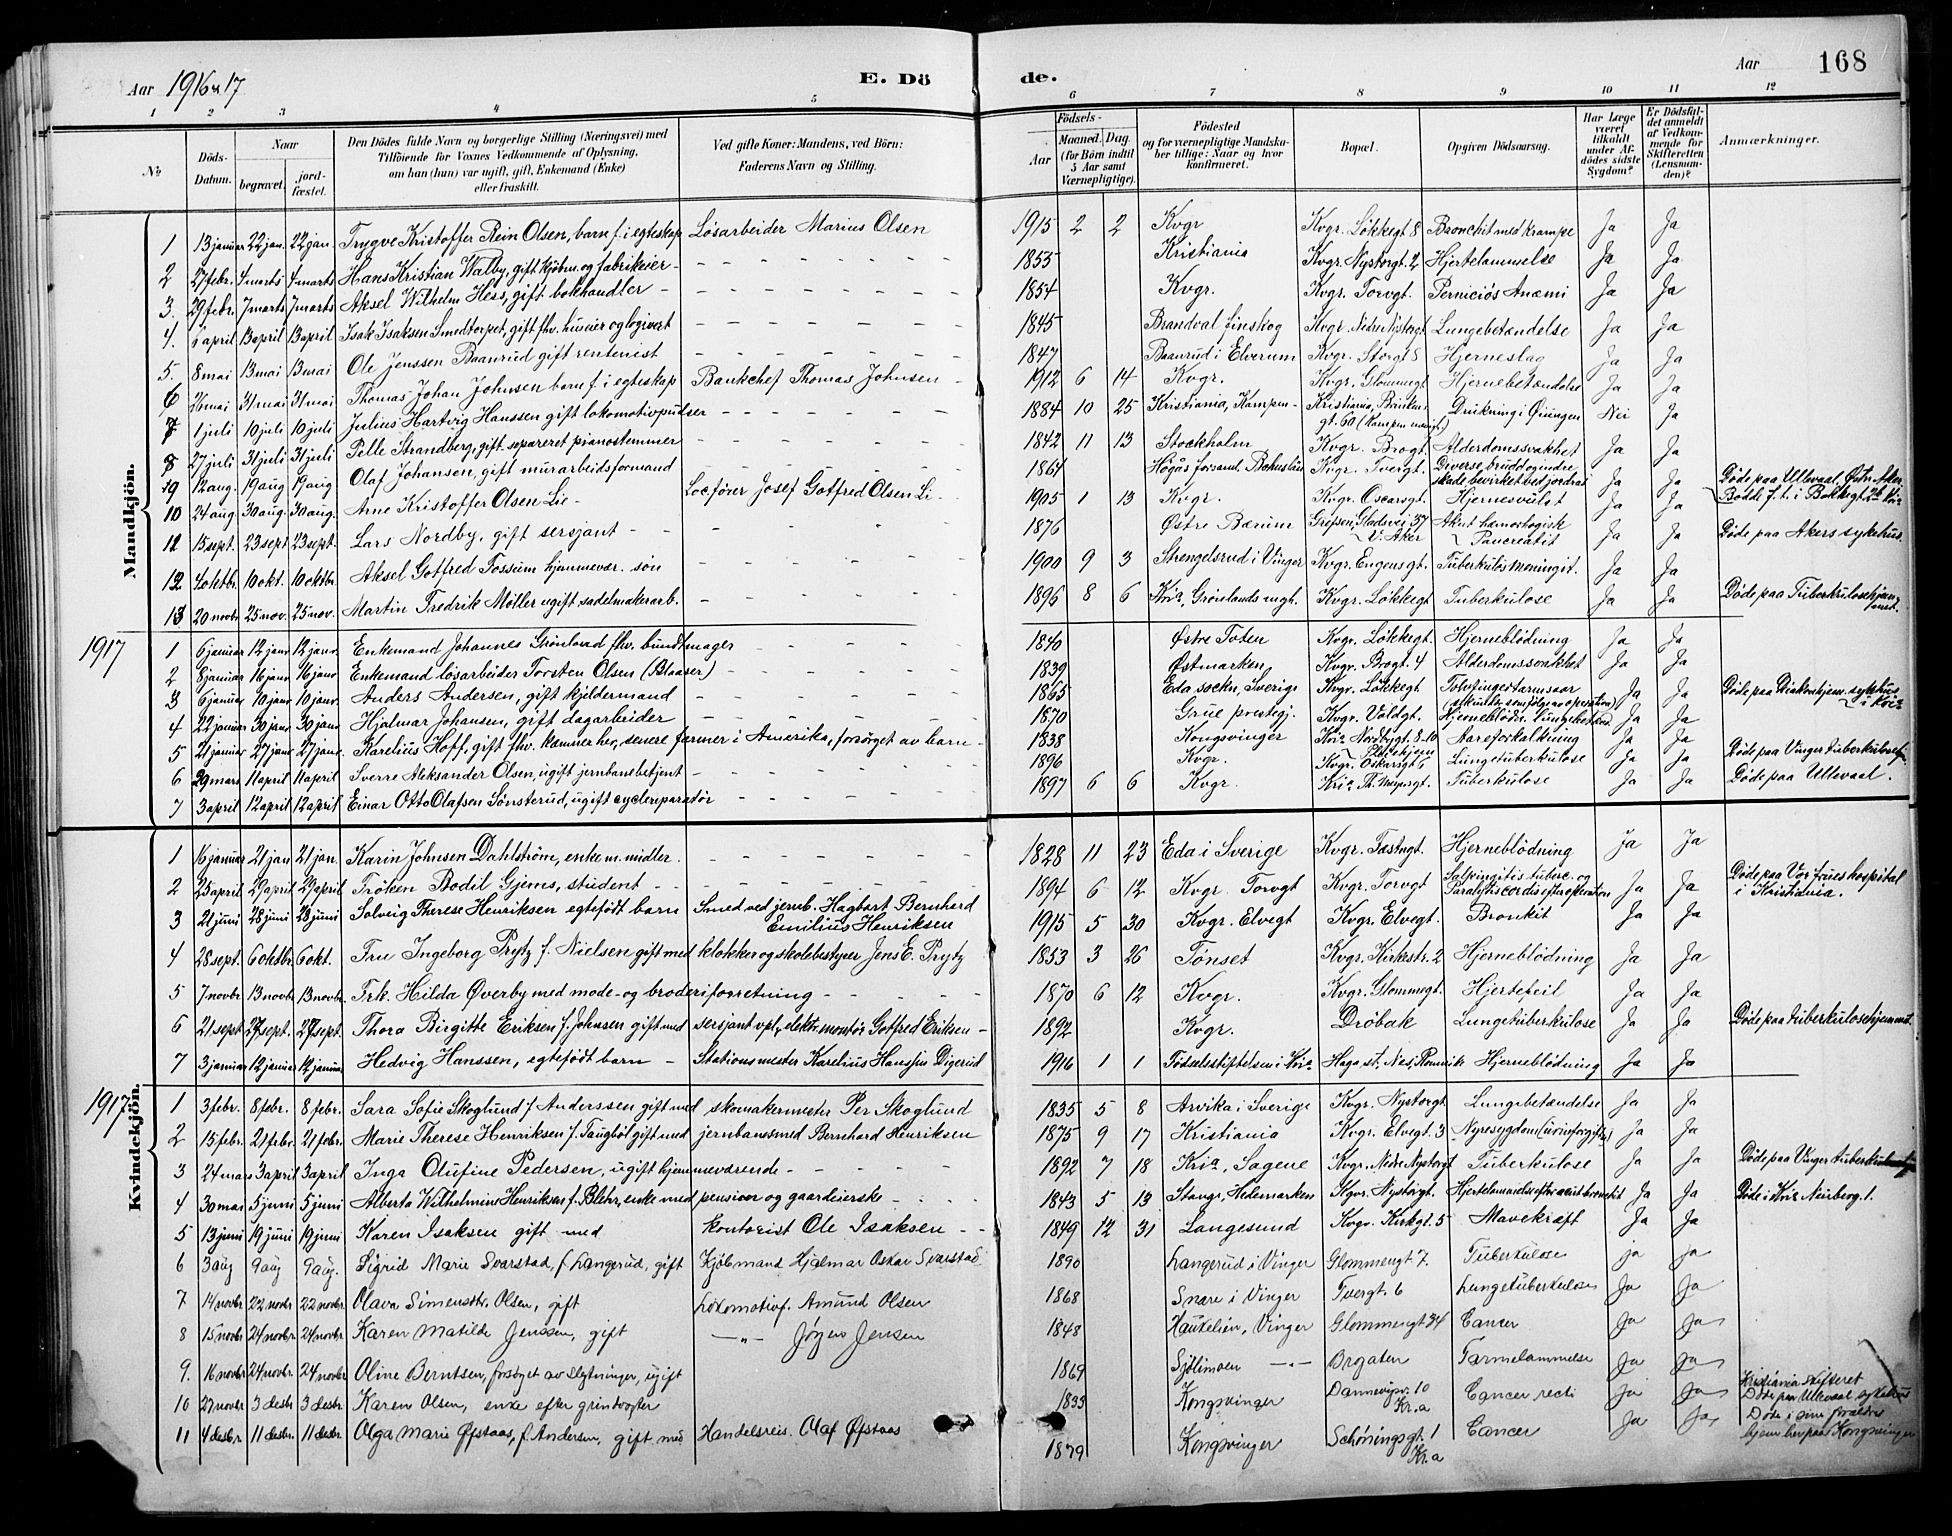 Aar 1916 & 17
E. Dö
de.
Aar
168
1 2 3 4 5 6 7 8 9 10 11 12
№
Döds-Datum.
Naar
begravet.
jord-fæstet.
Den Dödes fulde Navn og borgerlige Stilling (Næringsvei) med
Tilföiende for Voxnes Vedkommende af Oplysning,
om han (hun) var ugift, gift, Enkemand (Enke)
eller fraskilt.
Ved gifte Koner: Mandens, ved Börn:
Faderens Navn og Stilling.
Födsels-
Aar
Maaned. Dag.
(for Börn indtil
5 Aar samt
Værnepligtige).
Födested
og for værnepligtige Mandska-
ber tillige: Naar og hvor
konfirmeret.
Bopæl.
Opgiven Dödsaarsag.
Har Læge
været
tilkaldt
under Af-
dödes sidste
Sygdom?
Er Dödsfal-
det anmeldt
af Vedkom-
mende for
Skifteretten
(Lensman-
den)?
Anmærkninger.
Mandkjön.
1 13 januar 22 jan. 22 jan. Trygve Kristoffer Rein Olsen, barn f. i egteskap Løsarbeider Marius Olsen 1915 2 2 Kvgr Kvgr. Løkkegt 8 Bronchit med krampe Ja Ja
2 27 febr. 4 marts 4 marts Hans Kristian Walby, gift kjøbm. og fabrikeier 1853 Kristiania Kvgr. Nystorgt. 2 Hjertelammelse Ja Ja
3. 29 febr. 7 marts 7 marts Aksel Wilhelm Hess, gift bokhandler 1854 Kvgr. Kvgr. Torvgt. Perniciös Anæmi Ja Ja
4. 6 april 13 april 13 april Isak Isaksen Smedtorpet, gift fhv. huseier og logivert 1845 Brandval finskog Kvgr. Nedre Nystorgt Lungebetændelse Ja Ja
5. 8 mai 13 mai 13 mai Ole Jenssen Baanrud gift rentenist 1847 Baanrud i Elverum Kvgr. Storgt 8 Hjerneslag Ja Ja
6 26 mai 31 mai 31 mai Thomas Johan Johnsen barn f. i egteskap Bankchef Thomas Johnsen 1912 6 14 Kvgr. Kvgr. Glommegt Hjernebetændelse Ja Ja
7 1 juli 10 juli 10 juli Julius Hartvig Hanssen gift lokomotivpudser 1884 10 25 Kristiania, Kampen Kristiania, Brinken-
gt. 60 (Kampen menigt) Drukning i Øiungen Nei Ja
8 27 juli 31 juli 31 juli Pelle Strandberg, gift separeret pianostemmer 1842 11 13 Stockholm Kvgr. Brogt. Alderdomssvakhet Ja Ja
9 12 aug. 19 aug 19 aug Olaf Johansen, gift murarbeidsformand 1864 Högås forsaml. Bohuslän Kvgr. Tvergt. Diverse brudd og indre
skade bevirket ved jordras Ja Ja Døde paa Ullevaal, Østre Aker.
10 24 aug 30 aug. 30 aug. Arne Kristoffer Olsen Lie Locfører Josef Gotfred Olsen Li 1905 1 13 Kvgr. Kvgr. Oscarsgt. Hjernesvulst Ja Ja
11 15 sept. 23 sept 23 sept. Lars Nordby, gift sersjant 1876 Østre Bærum Grefsen, Gladsvei 37
V. Aker Akut hæmorhagisk
Pancreatit Ja Ja Døde paa Akers sykehus.
12 4 oktbr 10 okt. 10 oktbr Aksel Gotfred Fossum hjemmevær. søn 1900 9 3 Strengelsrud i Vinger Kvgr. Engensgt. Tuberkuløs meningit. Ja Ja
13 20 novbr 25 nov. 25 nov. Martin Fredrik Møller ugift sadelmakerarb. 1896 8 6 Kria, Grønlands mgh. Kvgr. Løkkegt Tuberkulose Ja Ja Døde paa Tuberkulosehjem-
met.
1917
1 6 januar 12 janr 12 janr. Enkemand Johannes Grønlund fhv. bundtmager 1840 Østre Toten Kvgr. Løkkegt. Hjerneblödning Ja Ja
2 8 januar 16 janr 16 janr Enkemand løsarbeider Torsten Olsen (Blaaser) 1839 Østmarken Kvgr. Brogt. 4 Alderdomssvakhet Ja Ja
3 6 januar 10 janr 10 janr. Anders Andersen, gift kjeldermand 1865 Eda sockn, Sverige Kvgr. Løkkegt Tolvfingertarmsaar Ja Ja Døde paa Diakonhjem. sykehus
i Kria
4 22 januar 30 janr 30 janr Hjalmar Johansen, gift dagarbeider 1870 Grue prestegj. Kvgr. Voldgt. Hjerneblödn. Lungebetænd. Ja Ja
5 21 januar 27 janr 27 janr. Karelius Hoff, gift fhv. kæmner her, senere farmer i Amerika, forsørget av barn 1838 Kongsvinger Kria Nordbygt. 8-10 Aareforkalkning Ja Ja
6 29 mars 11 april 11 april Sverre Aleksander Olsen, ugift jernbanebetjent 1896 Kvgr. Kvgr. Oskarsgt 5 Lungetuberkulose Ja Ja Døde paa Vinger tuberkulosehj.
7 3 april 12 april 12 april Einar Otto Olafsen Sønsterud, ugift cyclereparatør 1897 6 6 Kvgr. Kria Th. Meyersgt. Tuberkulose Ja Ja Døde paa Ullevaal.
Kvindekjön.
1 16 januar 21 jan 21 jan. Karin Johnsen Dahlström, enke m. midler. 1828 11 23 Eda i Sverige Kvgr. Fæstngt. Hjerneblödning Ja Ja
2 25 april 29 april 29 april Frøken Bodil Gjems, student 1894 6 12 Kvgr. Torvgt Kvgr. Torvgt Salpingitis tuberc. og
Paralysis cordis efter operation Ja Ja Døde paa Vor frues hospital
i Kristiania.
3 21 juni 28 juni 28 juni Solveig Therese Henriksen egtefødt barn Smed ved jernb. Hagbart Bernhard
Emilius Henriksen 1915 5 30 Kvgr. Elvegt Kvgr. Elvegt. Bronkit Ja Ja
4 28 sept. 6 oktbr 6 okt. Fru Ingeborg Prytz f. Nielsen gift med klokker og skolebestyrer Jens E. Prytz 1853 3 26 Tönset Kvgr. Kirkestr. 2 Hjerneblödning Ja Ja
5 7 novbr 13 novbr 13 novbr. Frk. Hilda Øverby med mode- og broderiforretning 1870 6 12 Kvgr. Kvgr. Glommegt. Hjertefeil Ja Ja
6 21 sept 27 sept. 27 sept. Thora Birgitte Eriksen f. Johnsen gift med sersjant vpl., elektr. montør Gotfred Eriksen 1892 Kvgr. Drøbak Lungetuberkulose Ja Ja Døde paa tuberkulosehjemmet.
7 3 januar 12 januar 12 januar Hedvig Hanssen, egtefödt barn Stationsmester Karelius Hanssen Digerud 1916 1 1 Fødselsstiftelsen i Kria Haga st., Nes, Romerik Hjerneblödning Ja Ja
1917
1 3 febr. 8 febr. 8 febr. Sara Sofie Skoglund f. Anderssen gift med skomakermester Per Skoglund 1835 5 8 Arvika i Sverige Kvgr. Nystorgt Lungebetændelse Ja Ja
2 15 febr. 21 febr. 21 febr. Marie Therese Henriksen f. Taugbøl gift med jernbanesmed Bernhard Henriksen 1875 9 17 Kristiania Kvgr. Elvegt. 3 Nyresygdom (urinforgiftn.) Ja Ja
3 24 mars 3 april 3 april Inga Olufine Pedersen, ugift hjemmeværende 1892 7 18 Kria, Sagene Kvgr. Nedre Nystorgt Tuberkulose Ja Ja Døde paa Vinger tuberkulosehj.
4 30 mai 5 juni 5 juni Alberta Wilhelmine Henriksen f. Blehr, enke med pension og gaardeierske 1843 5 13 Stange, Hedemarken Kgvr. Nystorgt. Ja Ja Døde i Kria Neuberg. 1.
5 13 juni 19 juni 19 juni Karen Isaksen gift med kontorist Ole Isaksen 1849 12 31 Langesund Kvgr. Kirkgt. 5 Mavekræft Ja Ja
6 3 aug 9 aug 9 aug. Sigrid Marie Svarstad, f. Langerud, gift Kjøbmand Hjalmar Oskar Svarstad 1890 Langerud i Vinger Glommengt 7. Tuberkulose ja ja
7 14 novbr 22 novbr 22 novbr. Olava Simensdtr. Olsen, gift Lokomotivf. Amund Olsen 1868 Snare i Vinger Tvergt. 6 Lungetuberkulose Ja Ja
8 15 novbr 24 novbr. 24 novbr. Karen Matilde Jenssen, gift —"— Jørgen Jensen 1848 Vinger Glommengt 34 Cancer Ja Ja
9. 16 novbr 24 novbr. 24 novbr Oline Berntsen, forsørget av slegtninger, ugift 1869 Sjølimoen —"— Brogaten Tarmelammelse Ja Ja
10 27 novbr 3 desbr 3 desbr. Karen Olsen, enke efter grindvogter 1833 Kongsvinger Dannevigsv. 10
Kr.a Cancer recti Ja Ja Kristiania skifteret
Døde paa Ullevaal sykehus
11 4 desbr 11 desbr. 11 desbr Olga Marie Øfstaas, f. Andersen, gift med Handelsreis. Olaf Øfstaas 1879 Kongsvinger Schøningsgt. 1
Kr.a Cancer Ja Ja Døde i sine forældres
hjem her paa Kongsvinger